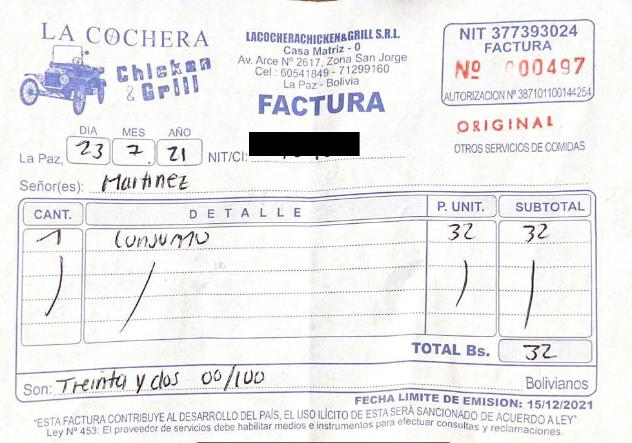 LA COCHERA
Chicken
& Grill
LACOCHERACHICKEN&GRILL S.R.L.
Casa Matriz - 0
Av. Arce Nº 2617, Zona San Jorge
Cel.: 60541849 - 71299160
La Paz - Bolivia
FACTURA
NIT 377393024
FACTURA
Nº 000497
AUTORIZACION Nº 387101100144254
ORIGINAL
OTROS SERVICIOS DE COMIDAS
DIA MES AÑO
La Paz, 23 7 21 NIT/CI:
Señor(es): Martinez
CANT. DETALLE P. UNIT. SUBTOTAL
1 Consumo 32 32
TOTAL Bs. 32
Son: Treinta y dos 00/100 Bolivianos
FECHA LIMITE DE EMISION: 15/12/2021
"ESTA FACTURA CONTRIBUYE AL DESARROLLO DEL PAÍS, EL USO ILÍCITO DE ESTA SERÁ SANCIONADO DE ACUERDO A LEY"
Ley Nº 453: El proveedor de servicios debe habilitar medios e instrumentos para efectuar consultas y reclamaciones.